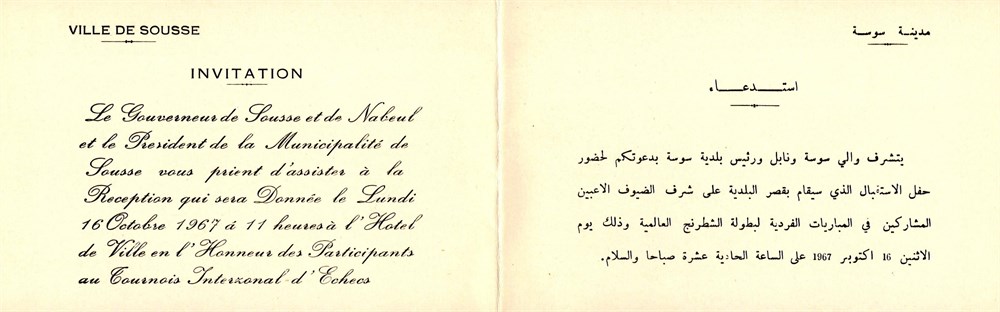 VILLE DE SOUSSE
INVITATION
Le Gouverneur de Sousse et de Nabeul
et le President de la Municipalité de
Sousse vous prient d'assister à la
Reception qui sera Donnée le Lundi
16 Octobre 1967 á 11 heures à l'Hotel
de Ville en l'Honneur des Participants
au Tournois Interzonal d'Echecs
مدينة سوسة
استدعاء
يتشرف والي سوسة ونابل ورئيس بلدية سوسة بدعوتكم لحضور
حفل الاستقبال الذي سيقام بقصر البلدية على شرف الضيوف الاعبين
المشاركين في المباريات الفردية لبطولة الشطرنج العالمية وذلك يوم
الاثنين 16 اكتوبر 1967 على الساعة الحادية عشرة صباحا والسلام.